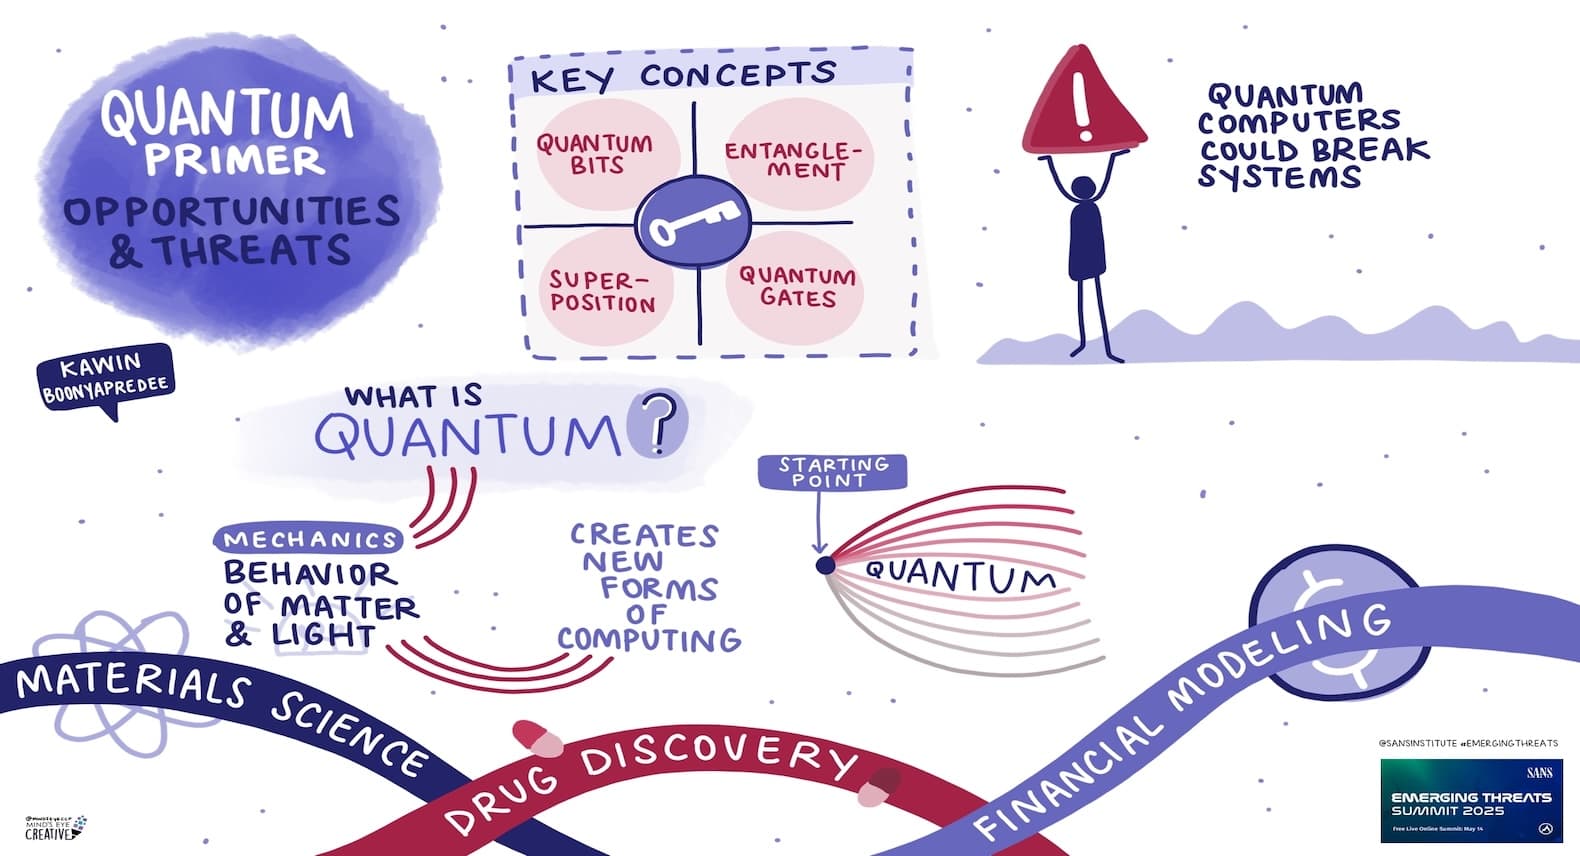 QUANTUM
PRIMER
OPPORTUNITIES
& THREATS
KAWIN
BOONYAPREDEE
KEY CONCEPTS
QUANTUM
BITS
ENTANGLE-
MENT
SUPER-
POSITION
QUANTUM
GATES
!
QUANTUM
COMPUTERS
COULD BREAK
SYSTEMS
WHAT IS
QUANTUM?
MECHANICS
BEHAVIOR
OF MATTER
& LIGHT
CREATES
NEW
FORMS
OF
COMPUTING
STARTING
POINT
QUANTUM
MATERIALS SCIENCE
DRUG DISCOVERY
FINANCIAL MODELING
@SANSINSTITUTE #EMERGINGTHREATS
SANS
EMERGING THREATS
SUMMIT 2025
Free Live Online Summit: May 14
MIND'S EYE
CREATIVE